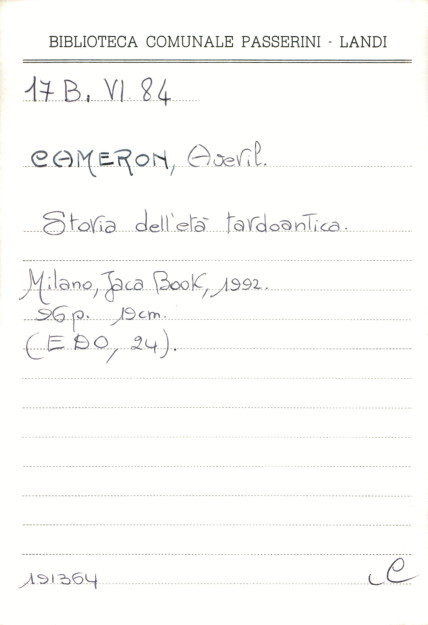 BIBLIOTECA COMUNALE PASSERINI - LANDI
17 B. VI 84
CAMERON, Averil.
Storia dell'età tardoantica.
Milano, Jaca Book, 1992.
96 p. 19 cm.
(EDO, 24).
191364
C